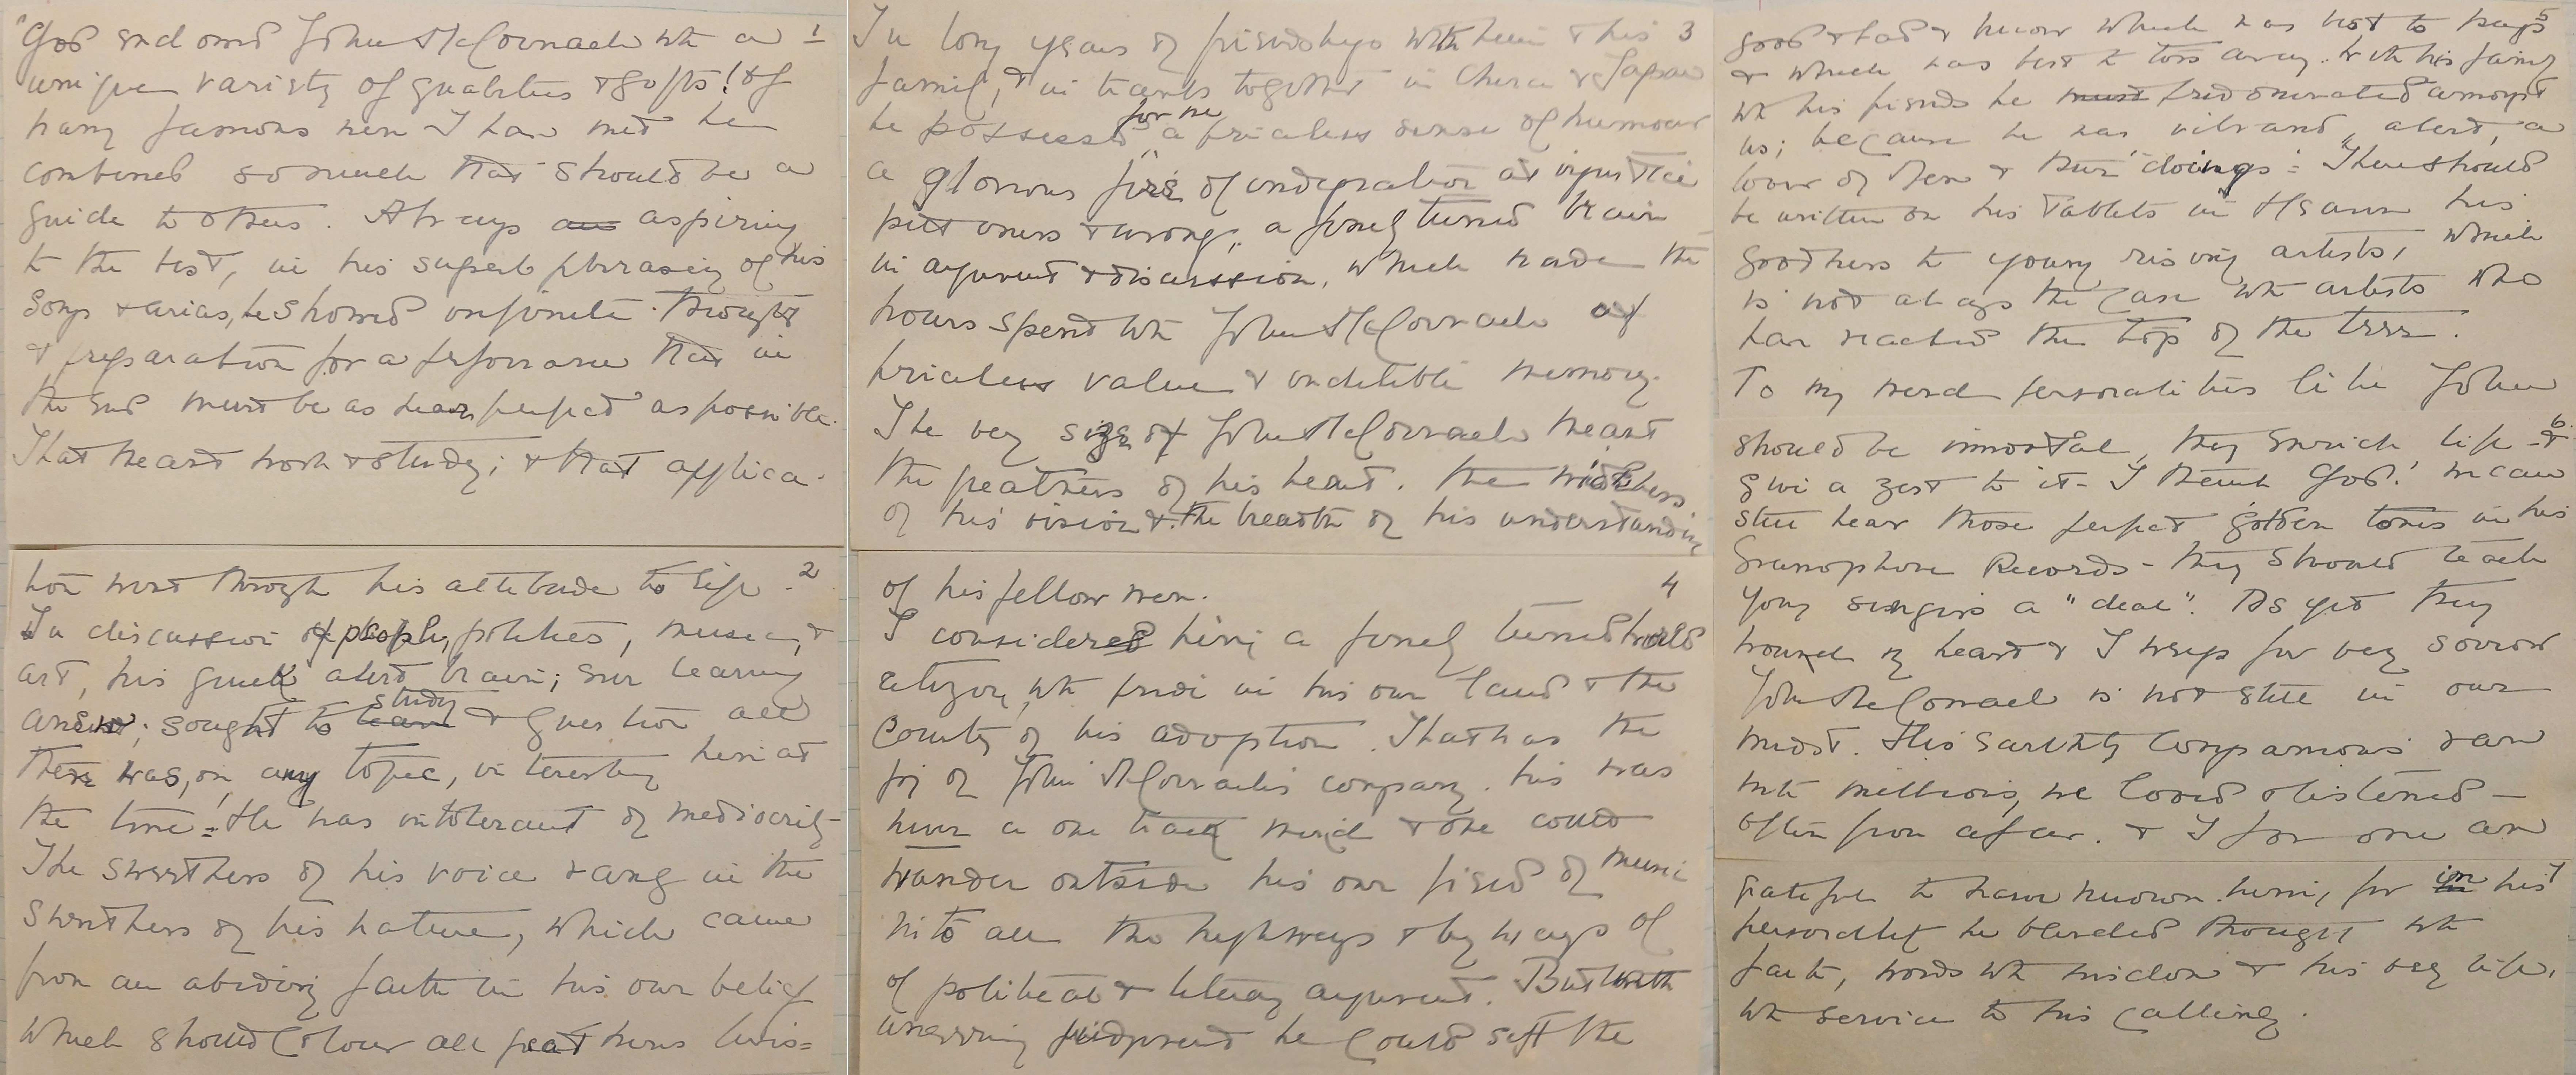 "God endowed John McCormack with a 1
unique variety of qualities & gifts! & of
many famous men I have met he
combined so much that should be a
guide to others. Always aspiring
to the best, in his superb phrasing of his
songs & arias, he showed infinite thought
& preparation for a performance that in
the end must be as near perfect as possible.
That meant work & study; & that applica-
tion went through his attitude to life. 2
In discussion of people, politics, music, &
art, his quick alert brain; ever learning
sought to study & question all
there was, on any topic, interesting him at
the time! = He was intolerant of mediocrity -
The sweetness of his voice rang in the
sweetness of his nature, which came
from an abiding faith in his own belief
which should colour all great mens lives =
In long years of friendship with him & his 3
family, & in travels together in China & Japan
he possessed for me a priceless sense of humour
a glorious fire of indignation at injustice
pettiness & wrong, a finely tuned brain
in argument & discussion, which made the
hours spend with John McCormack of
priceless value & indelible memory.
The very size of John McCormack meant
the greatness of his heart. the wideness
of his vision & the breadth of his understanding
of his fellow men. 4
I considered him a finely tuned world
citizen, with pride in his own land & the
country of his adoption. That was the
joy of John McCormack's company. his was
never a one track mind & one could
wander outside his own field of music
into all the highways & byways of
of political & literary argument. But with
unerring judgment he could sift the
good & bad & know which was best to keep 5
& which was best to toss away. With his family
with his friends he predominated amongst
us; because he was vibrant, alert, a
lover of men & their "doings": There should
be written on his Tablets in Heaven his
goodness to young rising artists, which
is not always the case with artists who
have reached the top of the tree.
To my mind personalities like John
should be immortal, they enrich life & 6
give a zest to it - I thank God! we can
still hear those perfect golden tones in his
Gramophone Records - they should teach
young singers a "deal". As yet they
wound my heart & I weep for very sorrow
John McCormack is not still in our
midst. His earthly companions & am
with millions, we loved & listened -
often from afar. & I for one am
grateful to have known him, for in his 7
personality he blended thought with
faith, words with wisdom & his very life,
with service to his calling.